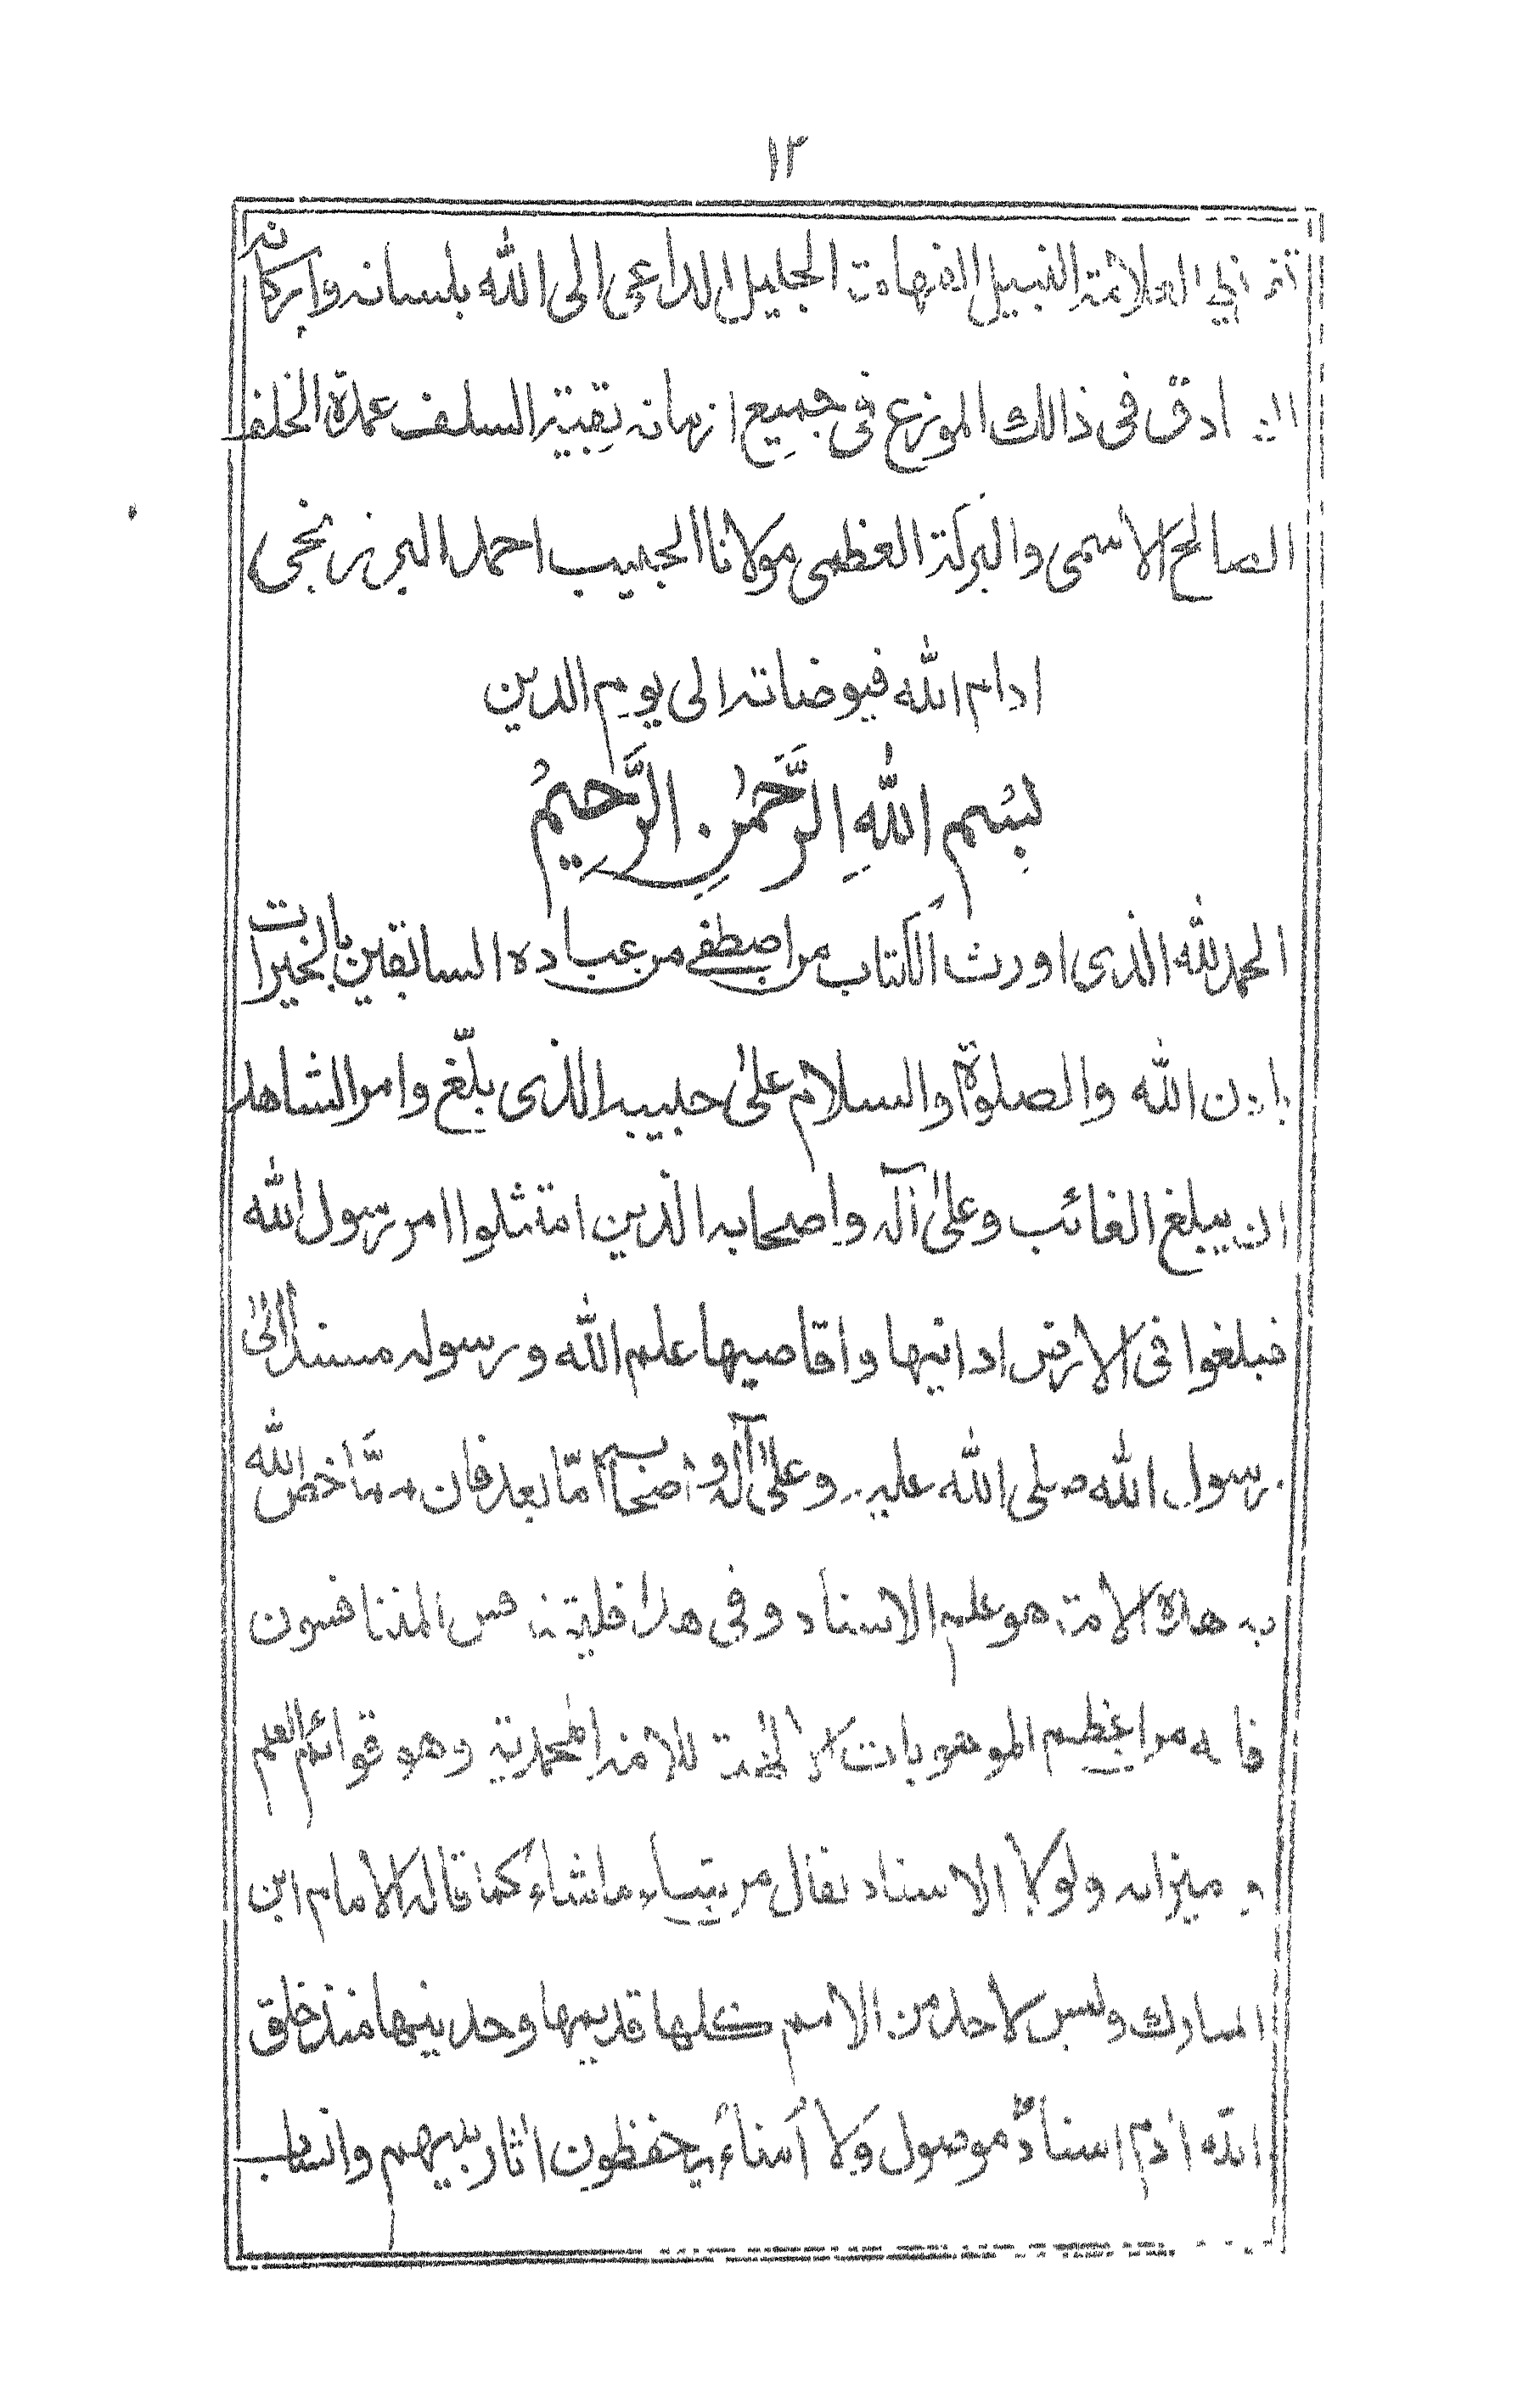 ١٣
العلامة النبيل الفهامة الجليل الداعى الى الله بلسانه واركانه
ادق فى ذالك الموزع فى جميع ازمانه بقية السلف عمدة الخلف
الصالح الاسمى والبركة العظمى مولانا الحبيب احمد البرزنجى
ادام الله فيوضاته الى يوم الدين
بِسْمِ اللهِ الرَّحْمٰنِ الرَّحِيمُ
الحمد لله الذى اورث الكتاب من اصطفى من عباده السابقين بالخيرات
باذن الله والصلوة والسلام على حبيبه الذى بلّغ وامر الشاهد
ان يبلغ الغائب وعلىٰ آله واصحابه الذين امتثلوا امر رسول الله
فبلغوا فى الارض ادانيها واقاصيها علم الله ورسوله مسندا الىٰ
رسول الله صلى الله عليه وعلىٰ آله و اصحابه امّا بعد فان ممّا خص الله
به هذه الامة هو علم الاسناد وفى هذا فليتنافس المتنافسون
فانه من اعظم الموهوبات للامة المحمدية وهو قوائم العلم
و ميزانه ولولا الاسناد لقال من يشاء ما شاء كما قاله الامام ابن
المبارك وليس لاحد من الامم كلها قديمها وحديثها منذ خلق
الله اٰدم اسنادٌ موصول ولا اُمناءُ يحفظون اٰثار نبيهم وانساب